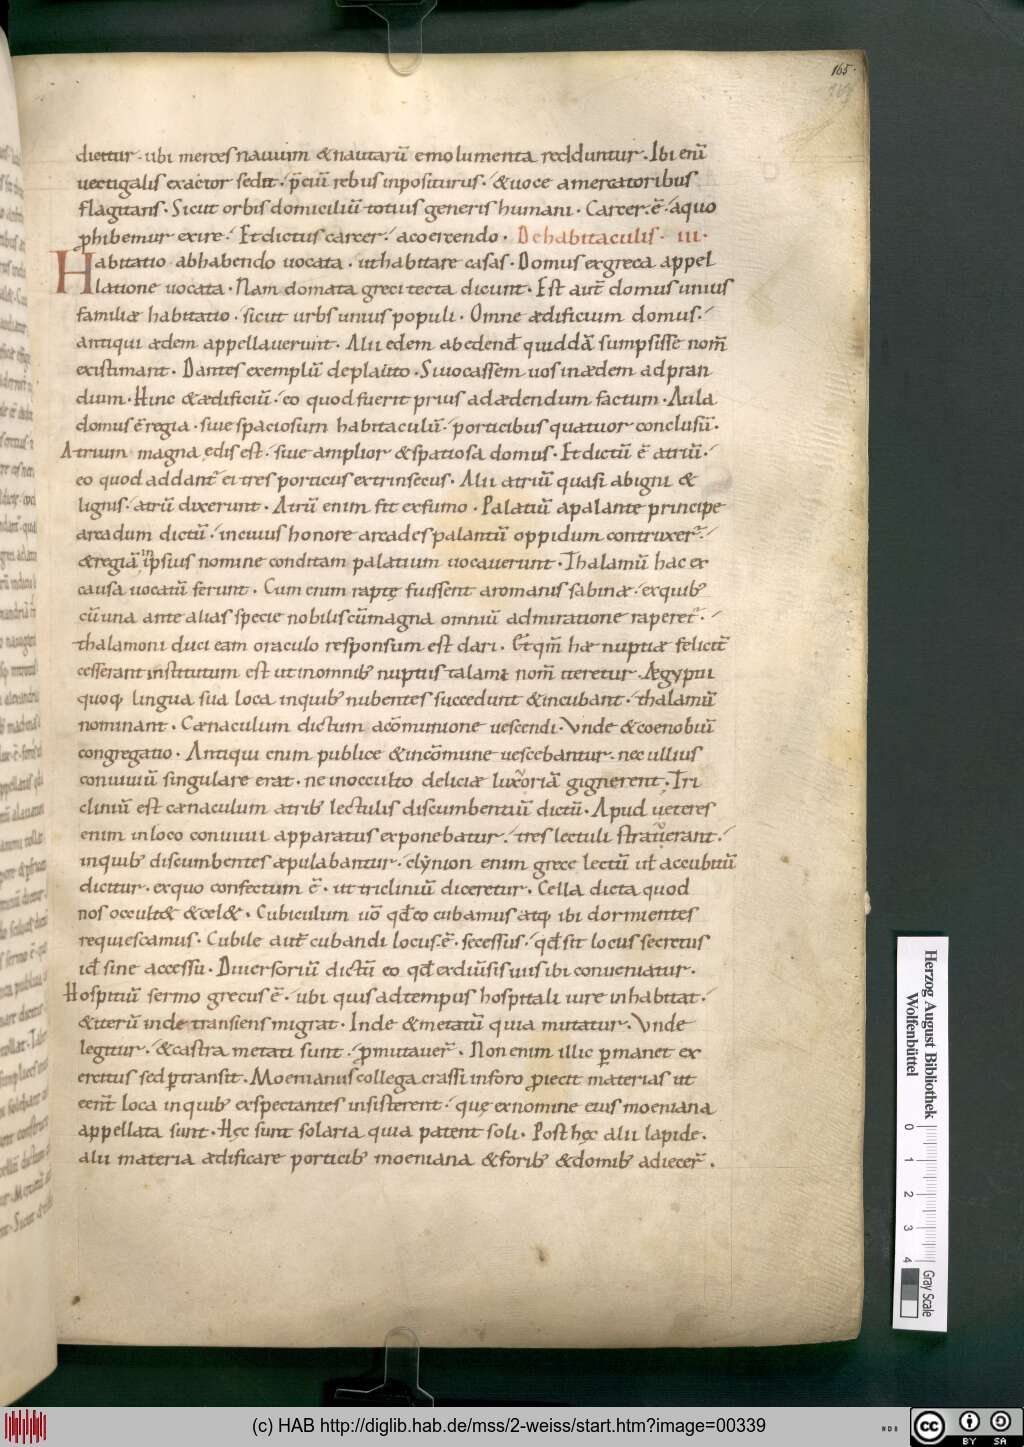 165.
dicitur · ubi merces nauium & nautarũ emolumenta redduntur · Ibi enĩ
uectigalis exactor sedit · p̄ciũ rebus inpositurus · & uoce a mercatoribus
flagitans · Sicut orbis domiciliũ totius generis humani · Carcer · ē · a quo
prohibemur exire · Et dictus carcer · a coercendo · De habitaculis · III ·
Habitatio ab habendo uocata · ut habitare casas · Domus ex greca appel
latione uocata · Nam domata greci tecta dicunt · Est aut̄ domus unius
familiæ habitatio · sicut urbs unius populi · Omne ædificium domus ·
antiqui ædem appellauerunt · Alii edem ab edend̄ quiddã sumpsisse nom̄
existimant · Dantes exemplũ de plauto · Si uocassem uos in ædem ad pran
dium · Hinc & ædificiũ · eo quod fuerit prius ad ædendum factum · Aula
domus ē regia · siue spaciosum habitaculũ · porticibus quatuor conclusũ ·
Atrium magna ędis est · siue amplior & spatiosa domus · Et dictũ ē atriũ ·
eo quod addant̄ ei tres porticus extrinsecus · Alii atriũ quasi ab igni &
lignis · atrũ dixerunt · Atrũ enim fit ex fumo · Palatiũ a palante principe
arcadum dictũ · in cuius honore arcades palantũ oppidum contruxer̄ ·
& regiã in ipsius nomine conditam palatium uocauerunt · Thalamũ hac ex
causa uocatũ ferunt · Cum enim raptę fuissent a romanis sabinæ · ex quib;
cũ una ante alias specie nobilis cũ magna omniũ admiratione raperet̄ ·
thalamoni duci eam oraculo responsum est dari · Et qm̄ hæ nuptiæ felicit̄
cesserant institutum est ut in omnib; nuptus talami nom̄ iteretur · Ægyptii
quoq; lingua sua loca in quib; nubentes succedunt & incubant · thalamũ
nominant · Cænaculum dictum a cōmunione uescendi · Vnde & coenobiũ
congregatio · Antiqui enim publice & in cōmune uescebantur · nec ullius
conuiuiũ singulare erat · ne in occulto deliciæ luxoriã gignerent · Tri
cliniũ est cænaculum a trib; lectulis discumbentiũ dictũ · Apud ueteres
enim in loco conuiuii apparatus exponebatur · tres lectuli strati erant ·
in quib; discumbentes æpulabantur · clynion enim grece lectũ ut̄ accubitũ
dicitur · ex quo confectum ē · ut tricliniũ diceretur · Cella dicta quod
nos occult& & cel& · Cubiculum uō qd̄ eo cubamus atq; ibi dormientes
requiescamus · Cubile aut̄ cubandi locus · ē · secessus · qd̄ sit locus secretus
id̄ sine accessu · Diuersoriũ dictũ eo qd̄ ex diūsis uiis ibi conueniatur ·
Hospitiũ sermo grecus ē · ubi quis ad tempus hospitali iure inhabitat ·
& iterũ inde transiens migrat · Inde & metatũ quia mutatur · Vnde
legitur · & castra metati sunt · p̄mutauer̄ · Non enim illic p̱manet ex
ercitus sed p̱transit · Moenianus collega crassi in foro p̄iecit materias ut
eēnt̄ loca in quib; exspectantes insisterent · quę ex nomine eius moeniana
appellata sunt · Hęc sunt solaria quia patent soli · Post hęc alii lapide ·
alii materia ædificare porticib; moeniana & forib; & domib; adiecer̄ ·
Herzog August Bibliothek
Wolfenbüttel
0 1 2 3 4
Gray Scale
(c) HAB http://diglib.hab.de/mss/2-weiss/start.htm?image=00339
cc BY SA